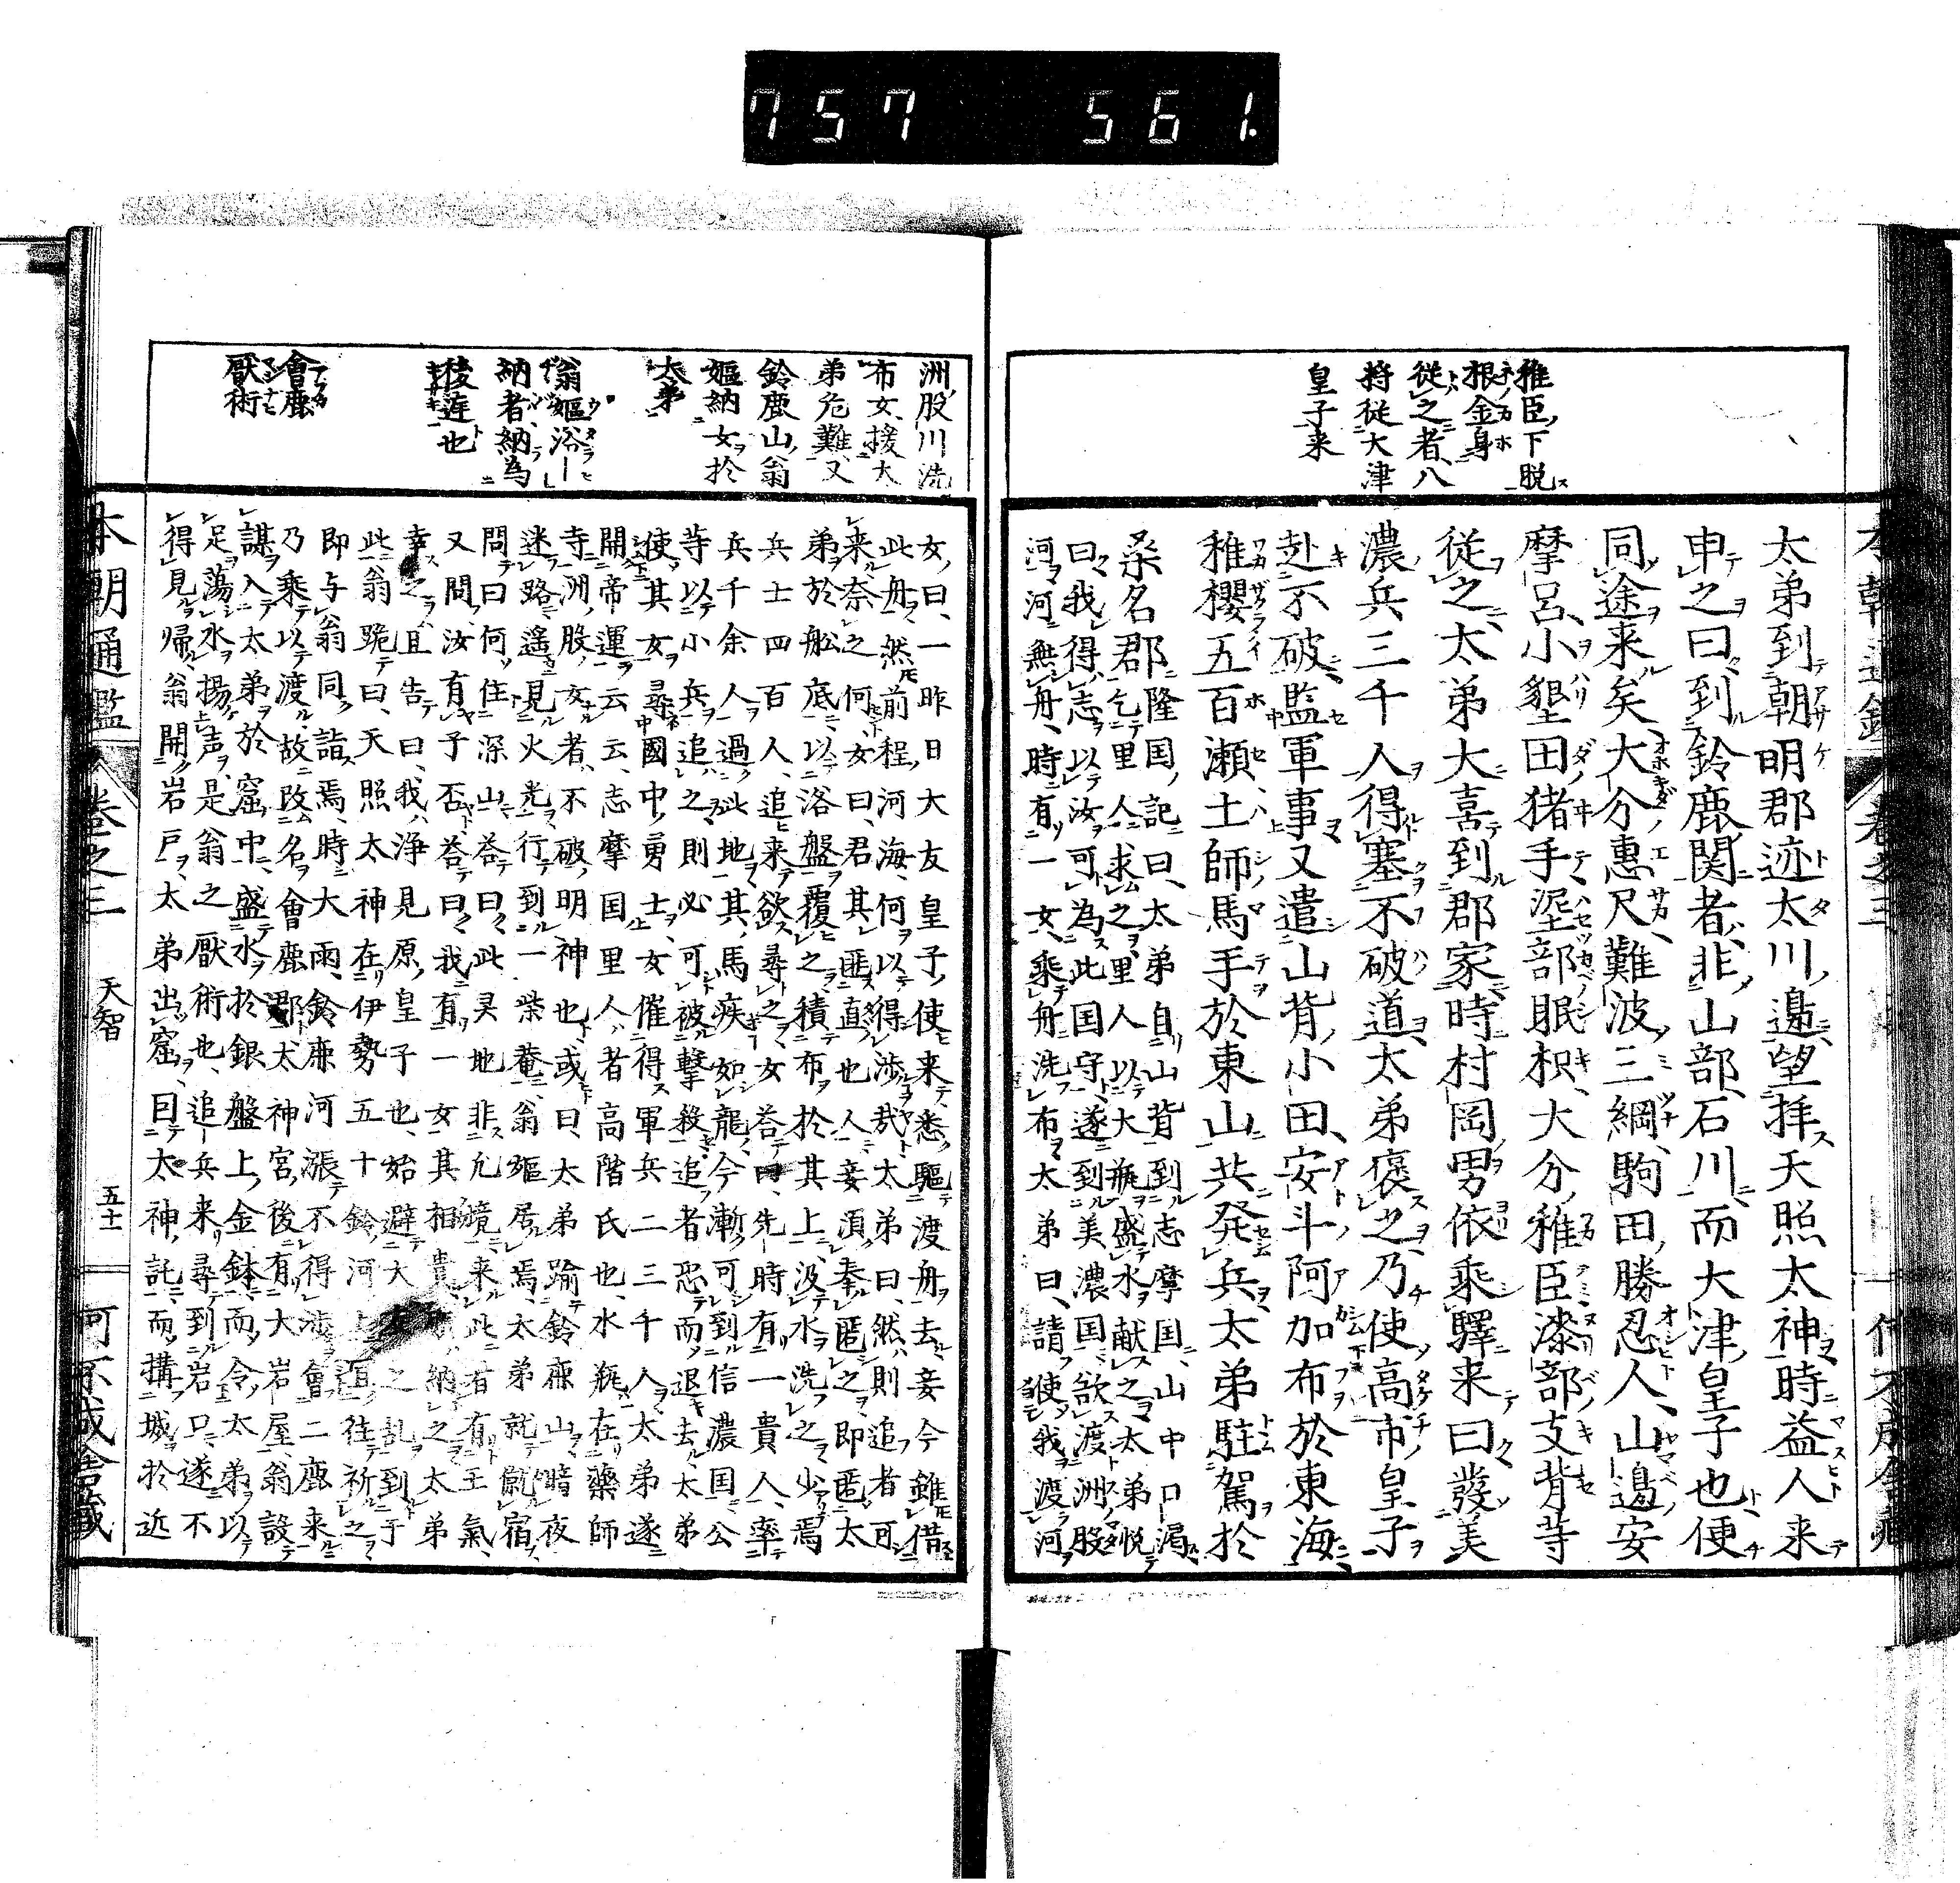 757 561.
稚臣下脱
根金身
従之者八
将従大津
皇子来
太弟到朝明郡迹太川邉望拝天照太神時益人来
申之曰到鈴鹿関者非山部石川而大津皇子也便
同途来矣大分惠尺難波三綱駒田勝忍人山邉安
摩呂小墾田猪手埿部眂枳大分稚臣漆部友背等
従之太弟大喜到郡家時村岡男依乘驛来曰發美
濃兵三千人得塞不破道太弟褒之乃使高市皇子
赴不破監軍事又遣山背小田安斗阿加布於東海
稚櫻五百瀬土師馬手於東山共発兵太弟駐駕於
桑名郡隆国記曰太弟自山背到志摩国山中口渇
乞里人求之里人以大瓶盛水献之太弟悦
曰我得志以汝可為此国守遂到美濃国欲渡洲股
河河無舟時有一女乘舟洗布太弟曰請使我渡河
洲股川洗
布女援大
弟危難又
鈴鹿山翁
嫗納女於
太弟
翁嫗浴
納者納為
後莚也
會鹿
厭術
女曰一昨日大友皇子使来悉驅渡舟去妾今雖借
此舟然前程河海何以得渉哉太弟曰然則追者可
来奈之何女曰君其匿直也人妾湏奉匿之即匿太
弟於舩底以洛盤覆之積布於其上汲水洗之少焉
兵士四百人追来欲尋之女荅曰先時有一貴人率
兵千余人過此地其馬疾如龍今漸可到信濃国公
等以小兵追之則必可被撃殺追者恐而退去太弟
使其女尋國中勇士女催得軍兵二三千人太弟遂
開帝運云云志摩国里人者高階氏也水瓶在藥師
寺洲股女者不破明神也或曰太弟踰鈴鹿山暗夜
迷路遙見火光行到一柴菴翁嫗居焉太弟就僦宿
問曰何住深山荅曰此㚑地非凢境来此者有王氣
又問汝有子否荅曰我有一女其相貴納之太弟
幸之且告曰我浄見原皇子也始避大友之乱到于
此翁跪曰天照太神在伊勢五十鈴河上往祈之
即与翁同詣焉時大雨鈴鹿河漲不得渉會二鹿来
乃乘以渡故改名會鹿郡太神宮後有大岩屋翁設
謀入太弟於窟中盛水於銀盤上金鉢而令太弟以
足蕩水揚声是翁之厭術也追兵来尋到岩口遂不
得見帰翁開岩戸太弟出窟因太神託而搆城於近
本朝通鑑 卷之三 天智 五十一